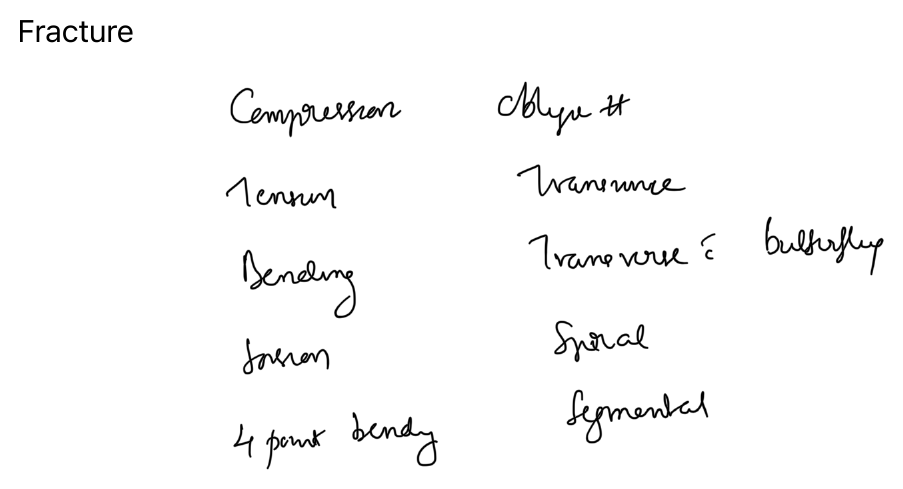 Fracture
Compression Oblique #
Tension Transverse
Bending Transverse c̄ butterfly
Torsion Spiral
4 point bending Segmental